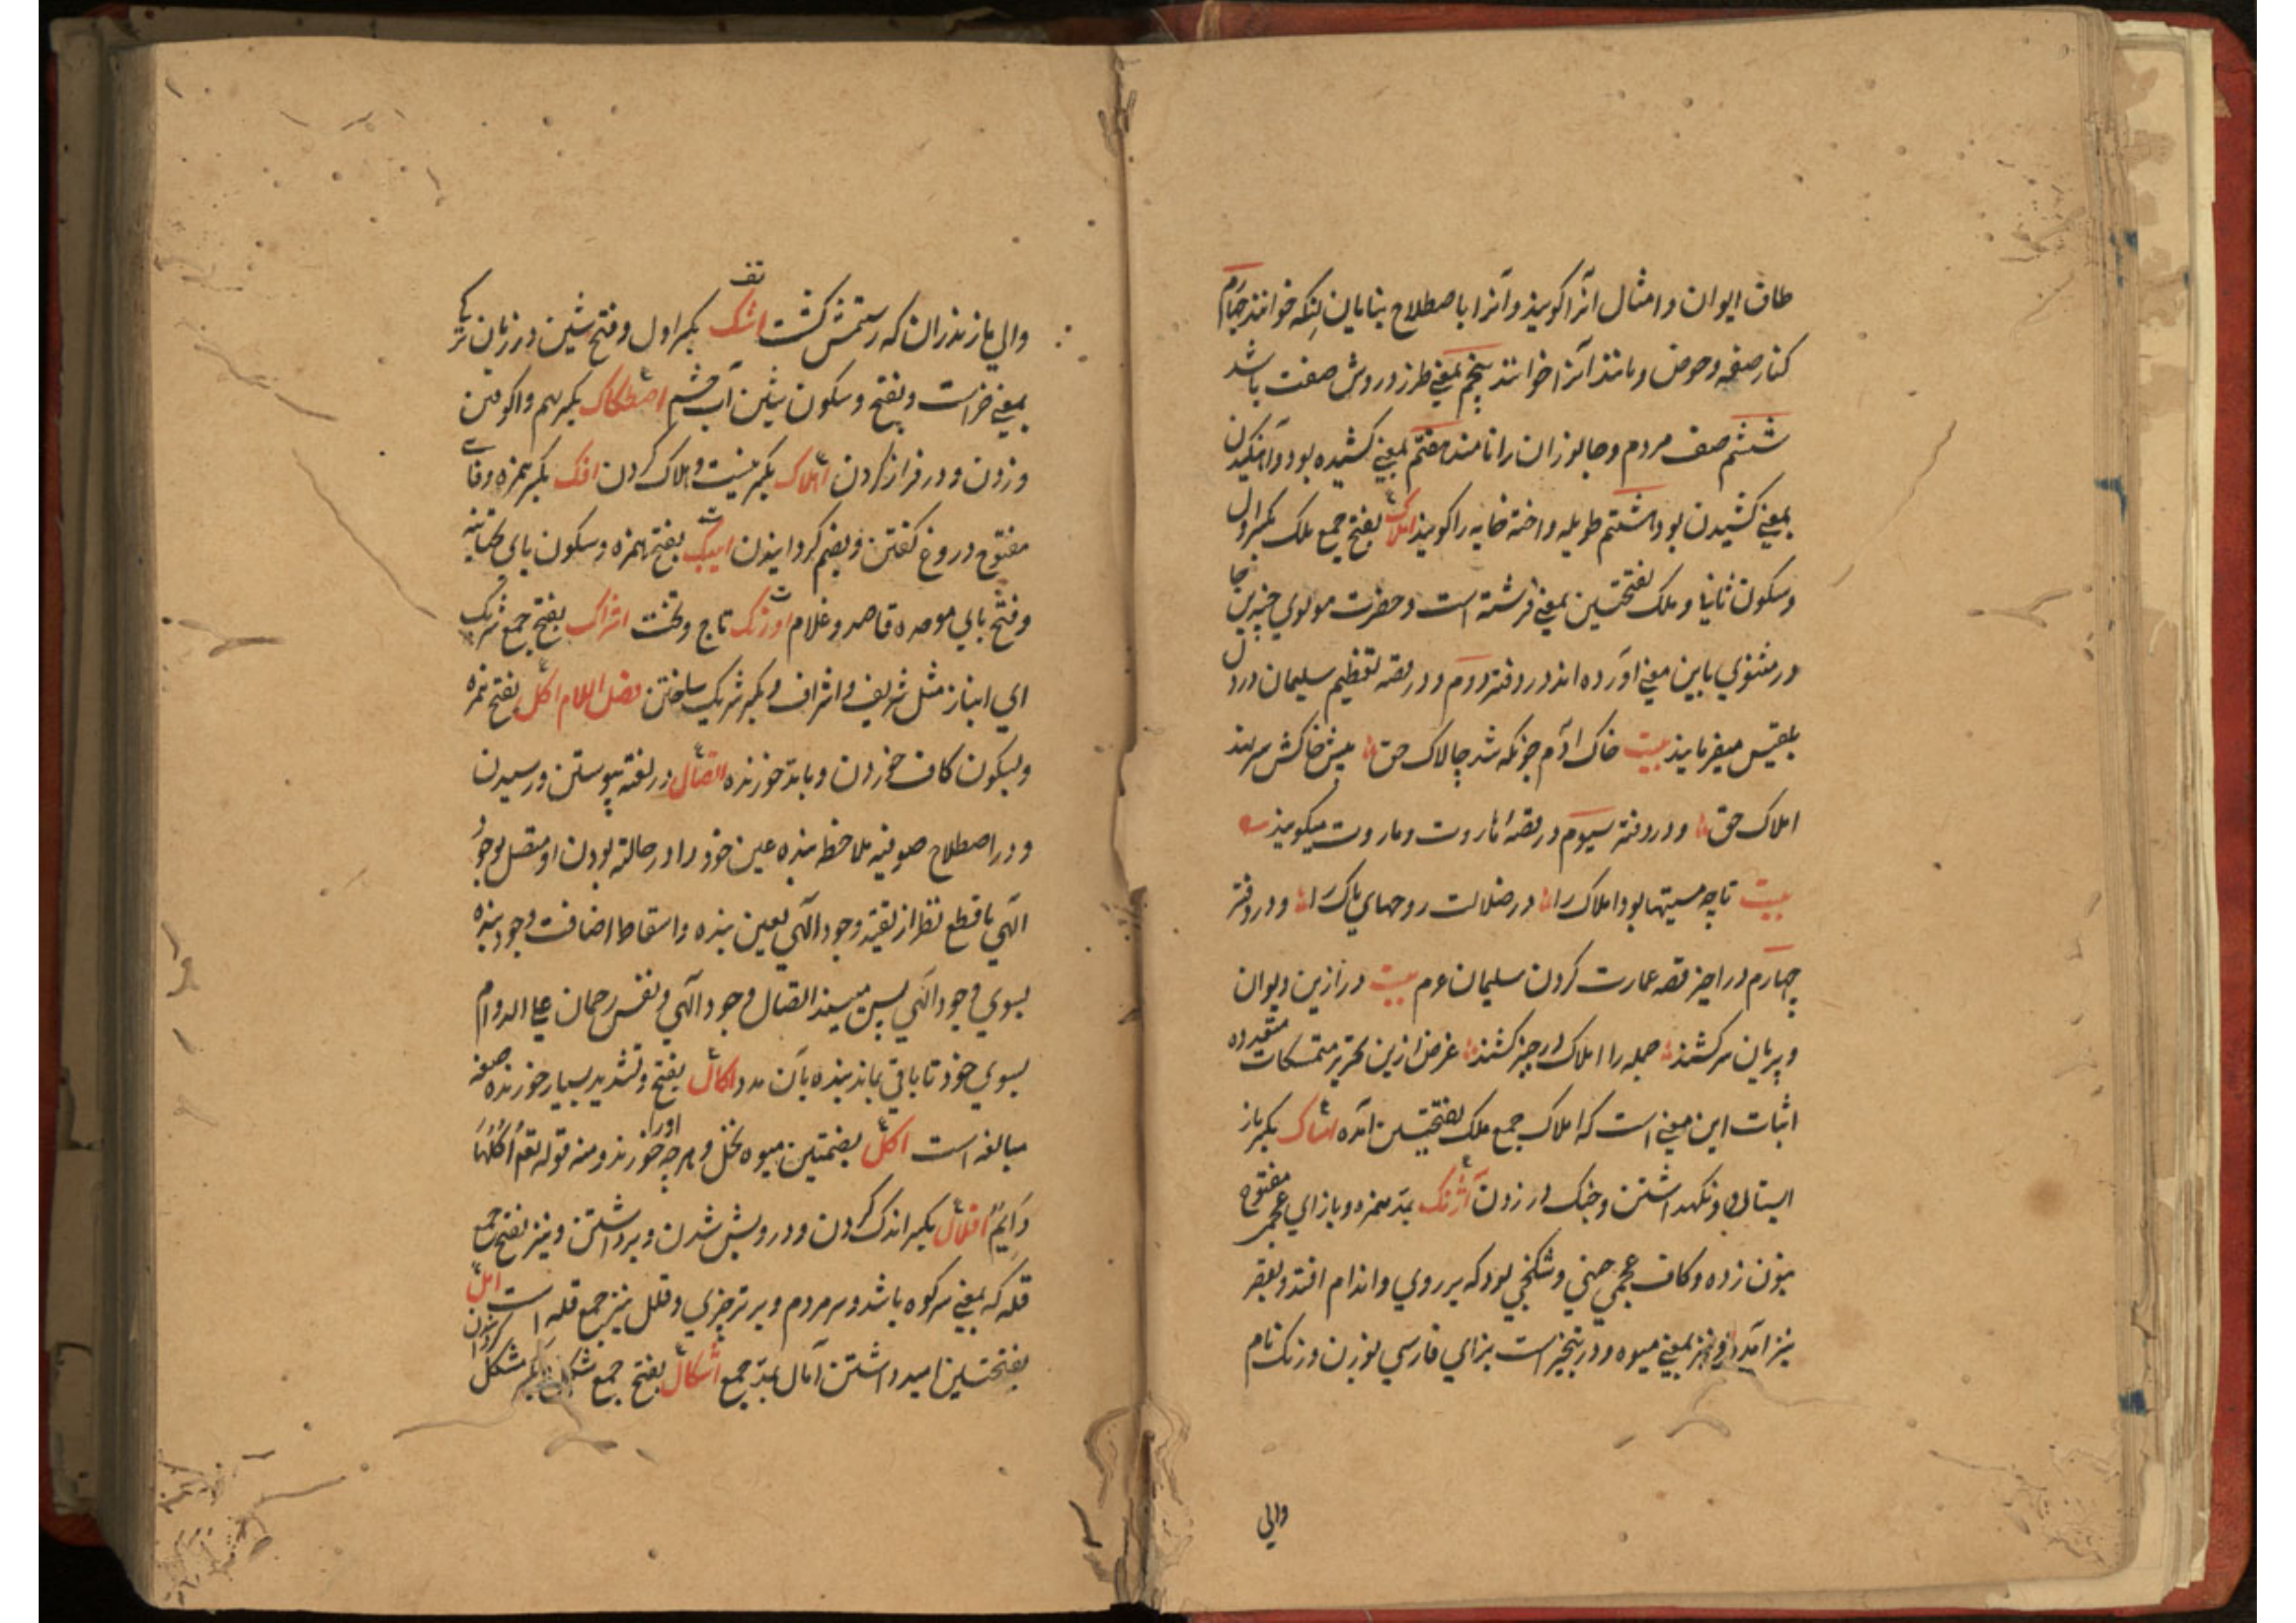 طاق ایوان و امثال آنرا گویند و آنرا باصطلاح بنایان لنکه خوانند چهارم
کنار صفه و حوض و مانند آنرا خوانند پنجم بمعنی طرز و روش صفت باشد
ششم صف مردم و جانوران را نامند هفتم بمعنی کشیده بود و آهنگیدن
بمعنی کشیدن بود هشتم طویله و اخته خانه را گویند املاک بفتح جمع ملک بکسر اول
و سکون ثانی و ملک بفتحتین بمعنی فرشته است و حضرت مولوی چندین جا
در مثنوی باین معنی آورده اند در دفتر دوم و در قصه تعظیم سلیمان در دل
بلقیس میفرمایند بیت خاک آدم چونکه شد چالاک حق پیش خاکش سر نهند
املاک حق و در دفتر سیوم در قصه هاروت و ماروت میگویند
بیت تا چه مستیها بود املاک را در ضلالت روحهای پاک را و در دفتر
چهارم در آخر قصه عمارت کردن سلیمان عم بیت ور ازین دیوان
و پریان سر کشند جمله را املاک در چنبر کشند غرض ازین تحریر متمسکات متعدده
اثبات این معنی است که املاک جمع ملک بفتحتین آمده امساک بکسر باز
ایستادن و نگهداشتن و چنک در زدن آژنک بمد همزه و بازای عجمی مفتوح
بنون زده و کاف عجمی چینی و شکنجی بود که بر روی و اندام افتد و بقصر
نیز آمده و نیز بمعنی میوه و در تبختر است بزای فارسی بوزن و رنک نام
والی
والی مازندران که رستمش کشت اشک بکسر اول و فتح شین در زبان ترکی
بمعنی خر است و بفتح و سکون شین آب چشم اصطکاک بکسر بهم واکوفتن
و زدن و در فراز کردن اهلاک بکسر نیست و هلاک کردن افک بکسر همزه و فای
مفتوح دروغ گفتن و بضم گردانیدن ایبک بفتح همزه و سکون یای تحتانیه
و فتح بای موحده قاصد و غلام اورنک تاج و تخت اشراک بفتح جمع شریک
ای انباز مثل شریف و اشراف و بکسر شریک ساختن فصل اللام اکل بفتح همزه
و بسکون کاف خوردن و بمد خورنده اتصال در لغه پیوستن و رسیدن
و در اصطلاح صوفیه ملاحظه بنده عین خود را در حالة بودن او متصل بوجود
الهی با قطع نظر از تقید وجود الهی بعین بنده و اسقاط اضافت وجود بنده
بسوی وجود الهی پس میبیند اتصال وجود الهی و نفس رحمان علی الدوام
بسوی خود تا باقی بماند بنده بآن مدد اکال بفتح و تشدید بسیار خورنده صیغه
مبالغه است اکل بضمتین میوه نخل و هر چه او را خورند و منه قوله تعم اکلها
دایم اقلال بکسر اندک کردن و درویش شدن و برداشتن و نیز بفتح جمع
قله که بمعنی سر کوه باشد و سر مردم و بر تر چیزی و قلل نیز جمع قله است امل
بفتحتین امید داشتن آمال بمد جمع اشکال بفتح جمع شکل و بکسر مشکل